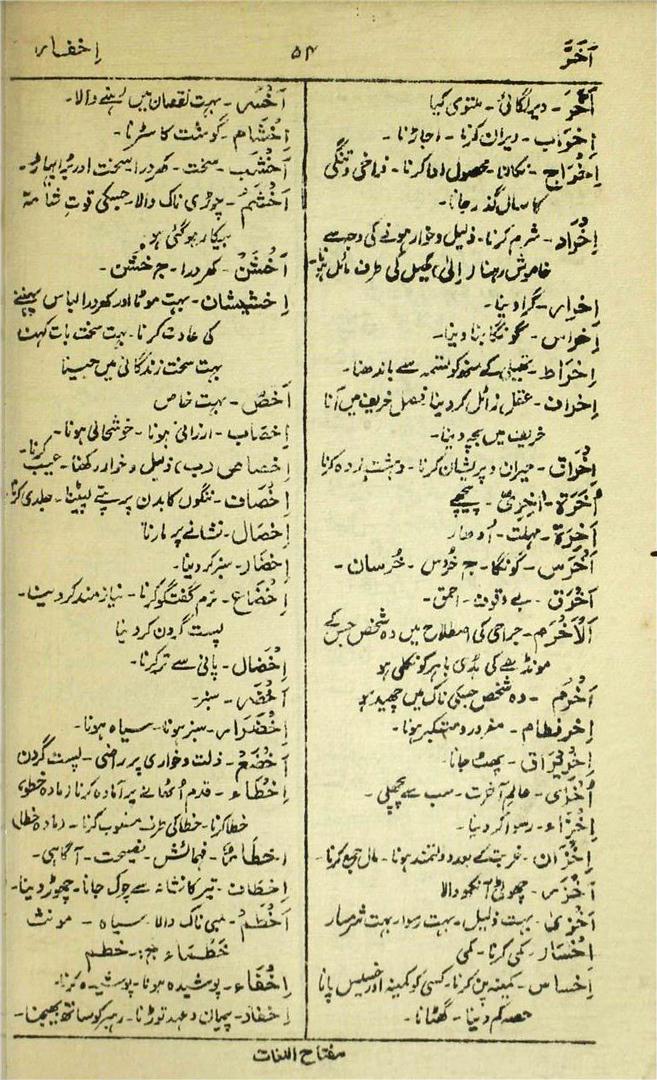 آخَرَّ
۵۴
اِخفار
آخَرَ - دیر لگائی - ملتوی کیا
اِخراب - ویران کرنا - اجاڑنا -
اِخراج - نکالنا - محصول ادا کرنا - فراخی و تنگی
کا سال گذر جانا -
اِخراد - شرم کرنا - ذلیل و خوار ہونے کی وجہ سے
خاموش رہنا (الیٰ) کھیل کی طرف مائل ہونا -
اِخرار - گرا دینا -
اِخراس - گونگا بنا دینا -
اِخراط - تھیلی کے منھ کو تسمہ سے باندھنا -
اِخراف - عقل زائل کر دینا فصل خریف میں آنا
خریف میں بچہ دینا -
اِخراق - حیران و پریشان کرنا - دہشت زدہ کرنا
اُخرَۃ - اُخرِیٌّ - پیچھے
آخِرَۃ - مہلت - اُدھار
اَخرَس - گونگا - ج خُرس - خُرسان -
اَخرَق - بے وقوف - احمق -
اَلاَخرَم - جراحی کی اصطلاح میں وہ شخص جس کے
مونڈھے کی ہڈی باہر کو نکلی ہو
اَخرَم - وہ شخص جسکی ناک میں چھید ہو
اِخرِنطام - مغرور و متکبر ہونا -
اِخرِیراق - پھٹ جانا -
اُخرٰی - عالمِ آخرت - سب سے پچھلی -
اِخزاء - رسوا کر دینا -
اِخزان - غربت کے بعد دولتمند ہونا - مال جمع کرنا -
اَخزَر - چھوٹی آنکھ والا
اَخزیٰ - بہت ذلیل - بہت رسوا - بہت شرمسار
اِخسار - کمی کرنا - کمی
اِخساس - کمینہ پن کرنا - کسی کو کمینہ اور خسیس پانا
حصہ کم دینا - گھٹانا -
اَخسَر - بہت نقصان میں رہنے والا -
اِخشام - گوشت کا سڑنا -
اَخشَب - سخت - کھردرا سخت اور بڑا پہاڑ -
اَخشَم - چوڑی ناک والا - جسکی قوتِ شامہ
بیکار ہو گئی ہو
اَخشَن - کھردرا - ج خُشن -
اِخشیشان - بہت موٹا اور کھردرا لباس پہننے
کی عادت کرنا - بہت سخت بات کہنا
بہت سخت زندگانی میں جینا
اَخَصّ - بہت خاص
اِخصاب - ارزانی ہونا - خوشحالی ہونا -
اِخصاص (ب) ذلیل و خوار رکھنا - عیب کرنا -
اِخصاف - ننگوں کا بدن پر پتے لپیٹنا - جلدی کرنا
اِخصال - نشانے پر مارنا
اِخضار - سبز کر دینا -
اِخضاع - نرم گفتگو کرنا - نیازمند کر دینا -
پست گردن کر دینا
اِخضال - پانی سے تر کرنا -
اَخضَر - سبز -
اِخضِرار - سبز ہونا - سیاہ ہونا -
اَخضَع - ذلت و خواری پر راضی - پست گردن
اِخطاء - قدم اٹھانے پر آمادہ کرنا (مادہ خطو)
خطا کرنا - خطا کی طرف منسوب کرنا - (مادہ خطا)
اِخطار - فہمائش - نصیحت - آگاہی -
اِخطاف - تیر کا نشانہ سے چوک جانا - چھوڑ دینا -
اَخطَم - لمبی ناک والا - سیاہ - مونث
خَطماء ج: - خُطم
اِخفاء - پوشیدہ ہونا - پوشیدہ کرنا -
اِخفار - پیمان و عہد توڑنا - رہبر کو ساتھ بھیجنا -
مفتاح اللغات